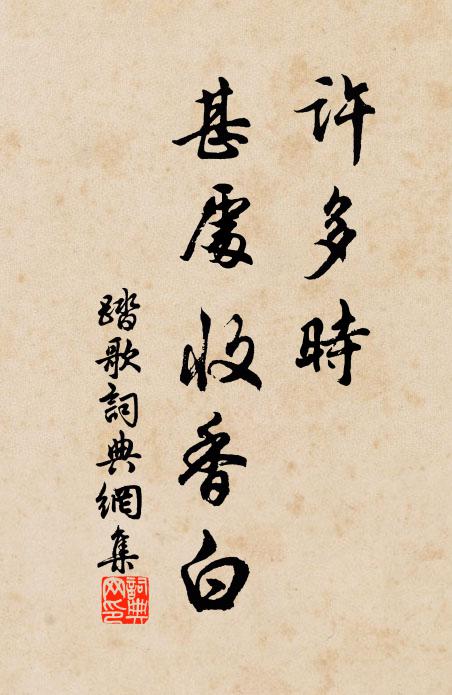 許多時
甚處收香白
踏歌詞典網集
詞典网印